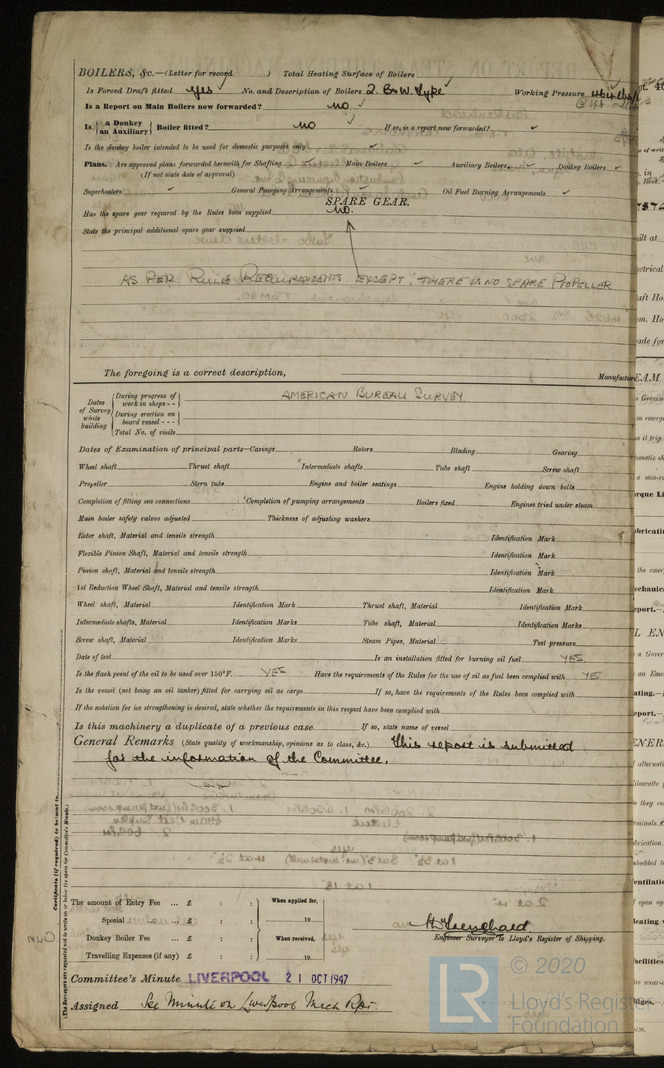 BOILERS, &c.—(Letter for record ) Total Heating Surface of Boilers
Is Forced Draft fitted yes No. and Description of Boilers 2. B&W. Type Working Pressure 464 lbs
Is a Report on Main Boilers now forwarded? NO
Is {a Donkey / an Auxiliary} Boiler fitted? NO If so, is a report now forwarded?
Is the donkey boiler intended to be used for domestic purposes only
Plans. Are approved plans forwarded herewith for Shafting Main Boilers Auxiliary Boilers Donkey Boilers
(If not state date of approval)
Superheaters General Pumping Arrangements Oil Fuel Burning Arrangements
SPARE GEAR.
Has the spare gear required by the Rules been supplied NO.
State the principal additional spare gear supplied
AS PER RULE REQUIREMENTS EXCEPT: THERE IS NO SPARE PROPELLER
The foregoing is a correct description,
Manufacturer
Dates of Survey while building
During progress of work in shops - - AMERICAN BUREAU SURVEY.
During erection on board vessel - - -
Total No. of visits
Dates of Examination of principal parts—Casings Rotors Blading Gearing
Wheel shaft Thrust shaft Intermediate shafts Tube shaft Screw shaft
Propeller Stern tube Engine and boiler seatings Engine holding down bolts
Completion of fitting sea connections Completion of pumping arrangements Boilers fixed Engines tried under steam
Main boiler safety valves adjusted Thickness of adjusting washers
Rotor shaft, Material and tensile strength Identification Mark
Flexible Pinion Shaft, Material and tensile strength Identification Mark
Pinion shaft, Material and tensile strength Identification Mark
1st Reduction Wheel Shaft, Material and tensile strength Identification Mark
Wheel shaft, Material Identification Mark Thrust shaft, Material Identification Mark
Intermediate shafts, Material Identification Marks Tube shaft, Material Identification Marks
Screw shaft, Material Identification Marks Steam Pipes, Material Test pressure
Date of test Is an installation fitted for burning oil fuel YES
Is the flash point of the oil to be used over 150°F. YES Have the requirements of the Rules for the use of oil as fuel been complied with YES
Is the vessel (not being an oil tanker) fitted for carrying oil as cargo If so, have the requirements of the Rules been complied with
If the notation for ice strengthening is desired, state whether the requirements in this respect have been complied with
Is this machinery a duplicate of a previous case If so, state name of vessel
General Remarks (State quality of workmanship, opinions as to class, &c.) This report is submitted
for the information of the Committee.
Certificate (if required) to be sent to
(The Surveyors are requested not to write on or below the space for Committee's Minute.)
The amount of Entry Fee ... £ : : When applied for,
Special ... ... £ : : 19
Donkey Boiler Fee ... £ : : When received,
Travelling Expenses (if any) £ : : 19
Engineer Surveyor to Lloyd's Register of Shipping.
Committee's Minute LIVERPOOL 21 OCT 1947
Assigned See Minute on Liverpool Mech Rpt.
LR © 2020
Lloyd's Register
Foundation